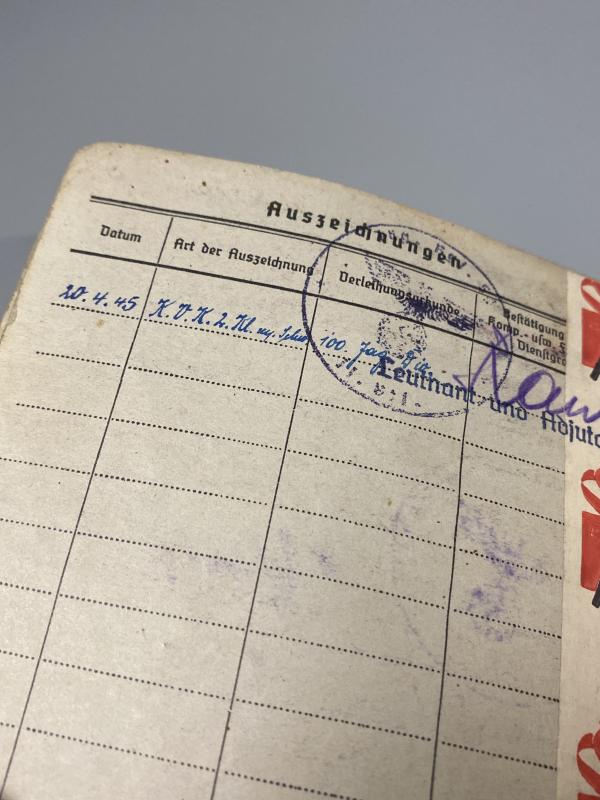 Auszeichnungen
Datum Art der Auszeichnung Verleihungsurkunde Bestätigung
Komp.- usw.
Dienstgr
20.4.45 K.V.K.2.Kl m. Schw 100. Jäg. Div.
Leutnant und Adjuta